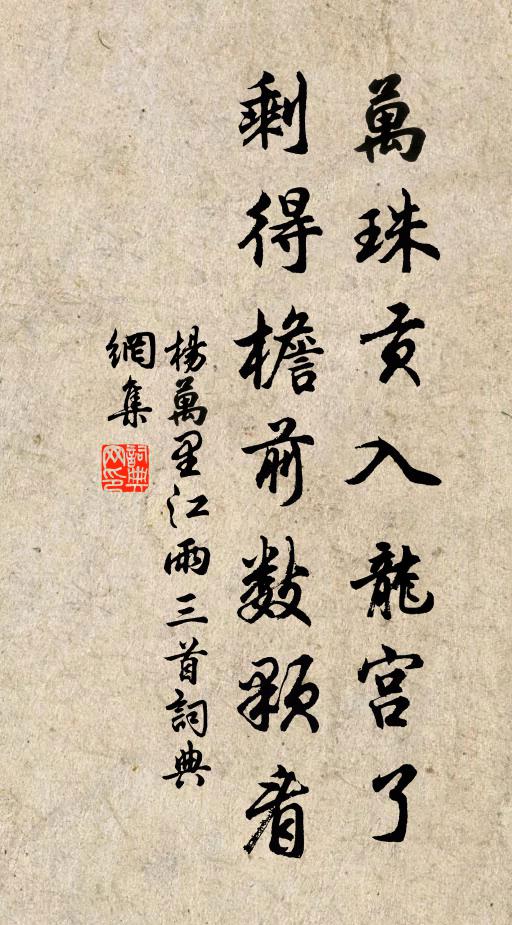 萬珠貢入龍宮了
剩得檐前數顆看
楊萬里江雨三首詞典
網集
詞典
网印